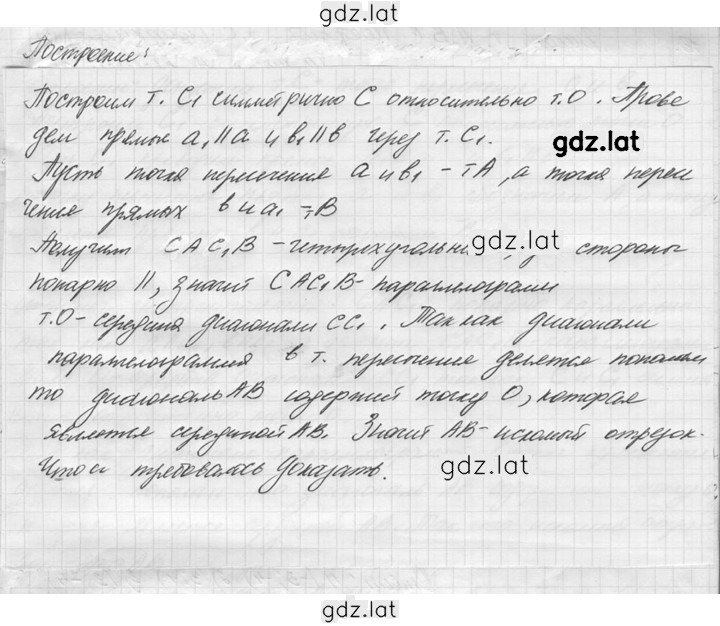 gdz.lat
Построение:
Построим т. C₁ симметрично C относительно т.O. Прове
дем прямые a₁||a и b₁||b через т. C₁.
gdz.lat
Пусть точка пересечения a и b₁ - т A, а точка пересе
чение прямых b и a₁ - т B
Получим CAC₁B - четырехугольни стороны
gdz.lat
попарно ||, значит CAC₁B - параллелограмм
т.O - середина диагонали CC₁. Так как диагонали
параллелограмма в т. пересечения делятся пополам
то диагональ AB содержит точку O, которая
является серединой AB. Значит AB - искомый отрезок.
Что и требовалось доказать.
gdz.lat
gdz.lat